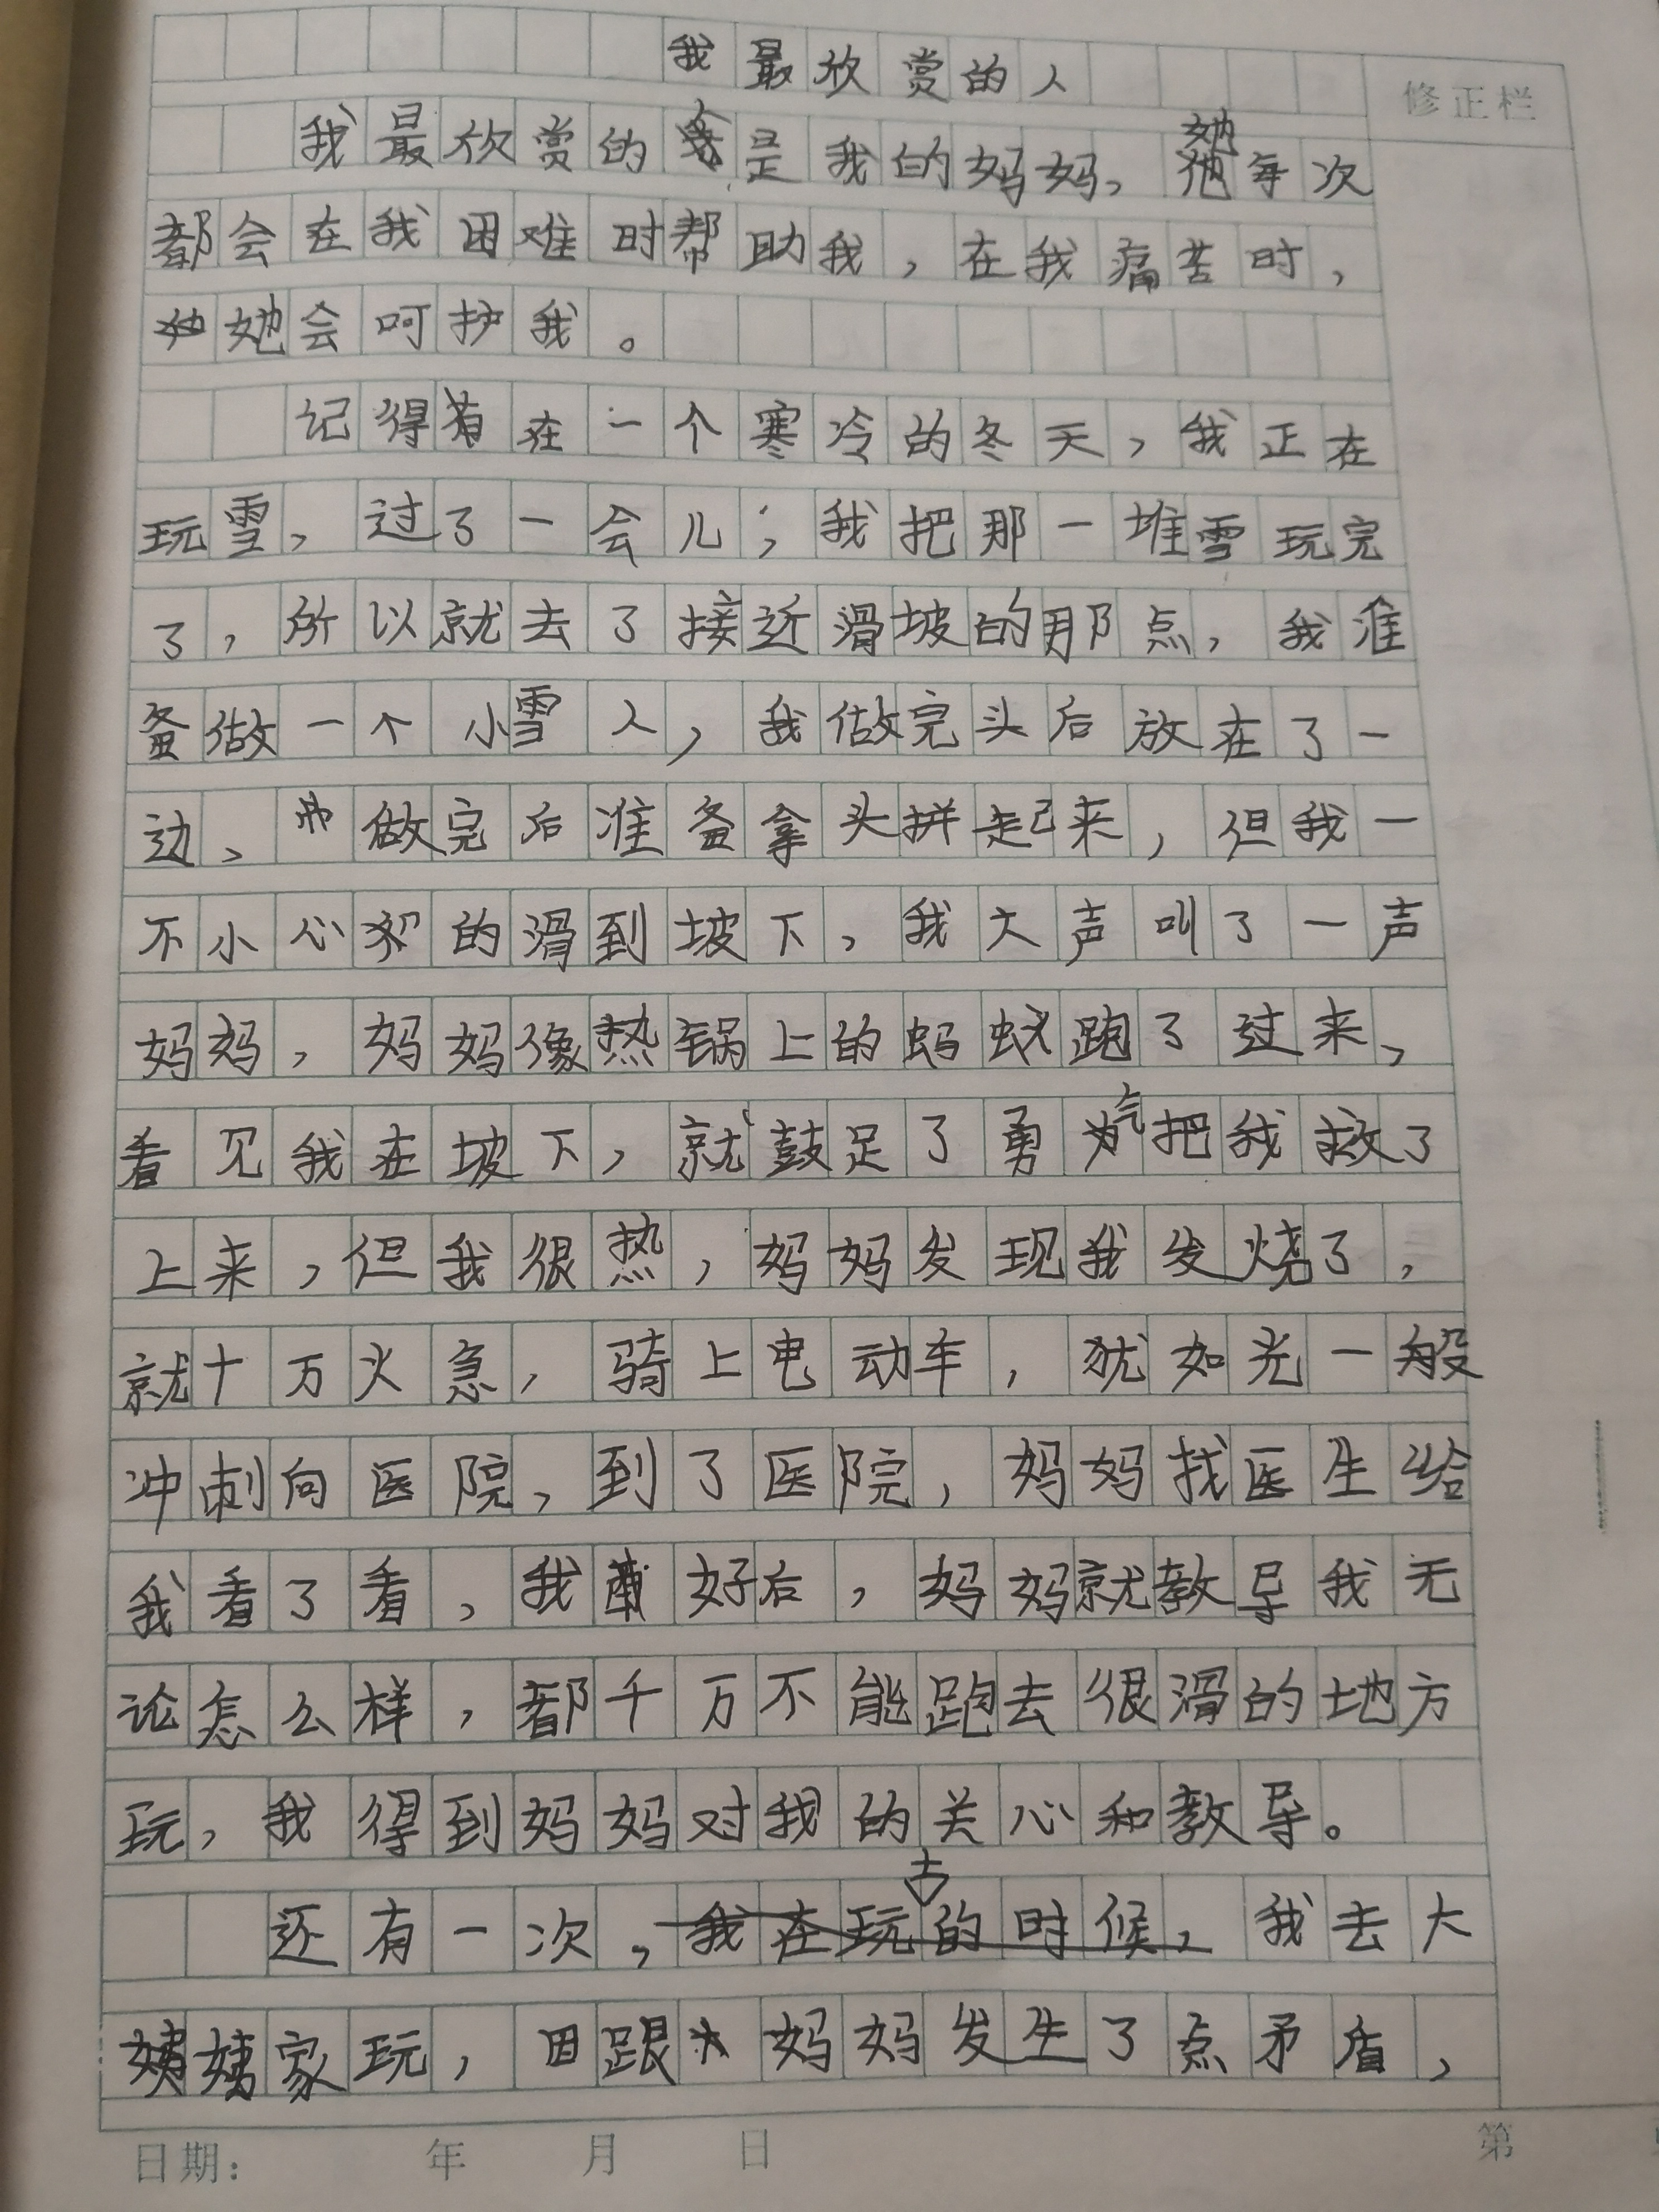 我最欣赏的人
修正栏
我最欣赏的是我的妈妈，她每次
都会在我困难时帮助我，在我痛苦时，
她会呵护我。
记得在一个寒冷的冬天，我正在
玩雪，过了一会儿；我把那一堆雪玩完
了，所以就去了接近滑坡的那点，我准
备做一个小雪人，我做完头后放在了一
边、做完后准备拿头拼起来，但我一
不小心的滑到坡下，我大声叫了一声
妈妈，妈妈像热锅上的蚂蚁跑了过来，
看见我在坡下，就鼓足了勇气把我救了
上来，但我很热，妈妈发现我发烧了，
就十万火急，骑上电动车，犹如光一般
冲刺向医院，到了医院，妈妈找医生给
我看了看，我好后，妈妈就教导我无
论怎么样，都千万不能跑去很滑的地方
玩，我得到妈妈对我的关心和教导。
还有一次，我在玩的时候，我去大
姨家玩，因跟妈妈发生了点矛盾，
日期： 年 月 日
第